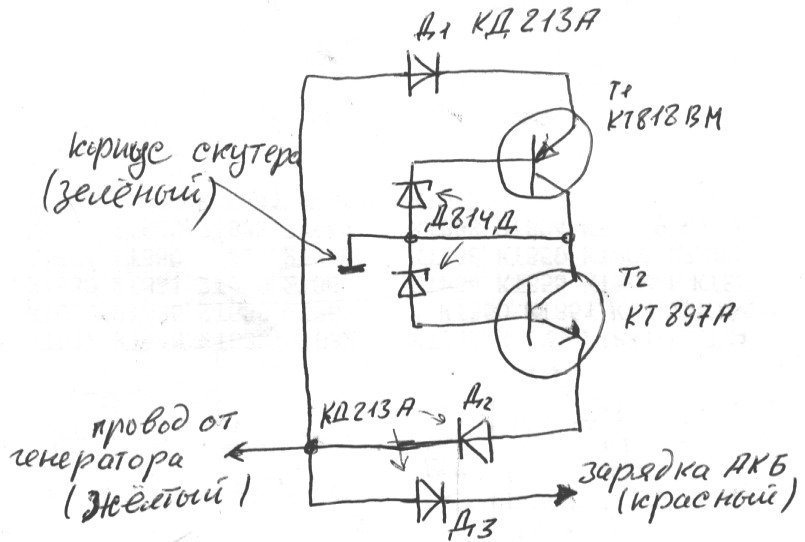 Д1 КД 213А
Т1
КТ818ВМ
корпус скутера
(зелёный)
Д814Д
Т2
КТ 897А
КД 213А
Д2
провод от
генератора
(жёлтый)
зарядка АКБ
(красный)
Д3